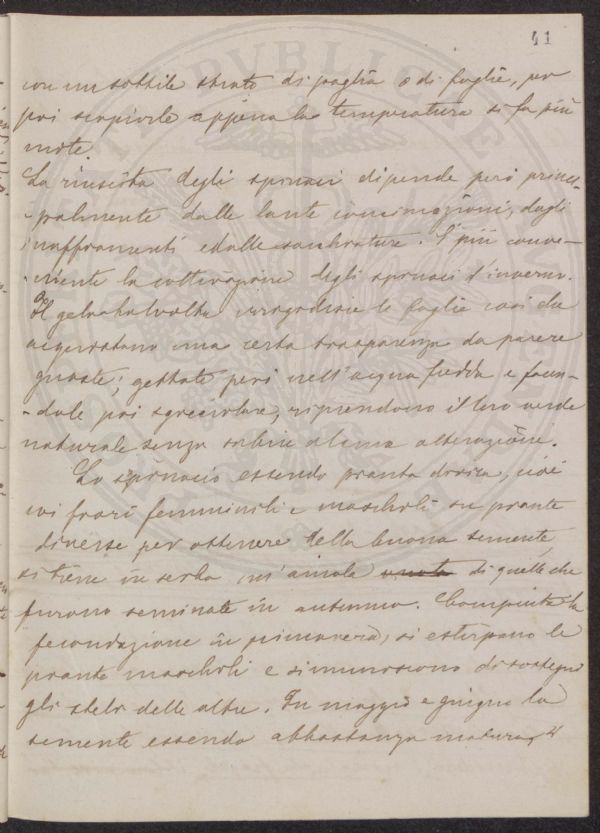 41
con un sottile strato di paglia o di foglie, per
poi scoprirle appena la temperatura si fa più
mite.
La riuscita degli spinaci dipende però princi-
-palmente dalle laute concimazioni, dagli
innaffiamenti e dalle sarchiature. È più conve-
-niente la coltivazione degli spinaci d'inverno.
Il gelo talvolta irrigidisce le foglie così da
acquistano una certa trasparenza da parere
guaste; gettate però nell'acqua fredda e facen-
-dole poi sgocciolare, riprendono il loro verde
naturale senza subire alcuna alterazione.
Lo spinacio essendo pianta dioica, cioè
coi fiori femminili e maschili su piante
diverse per ottenere della buona semente,
si tiene in serbo un'aiuola di quelle che
furono seminate in autunno. Compiuta la
fecondazione in primavera, si estirpano le
piante maschili e si muniscono di sostegno
gli steli delle altre. In maggio e giugno la
semente essendo abbastanza matura, si